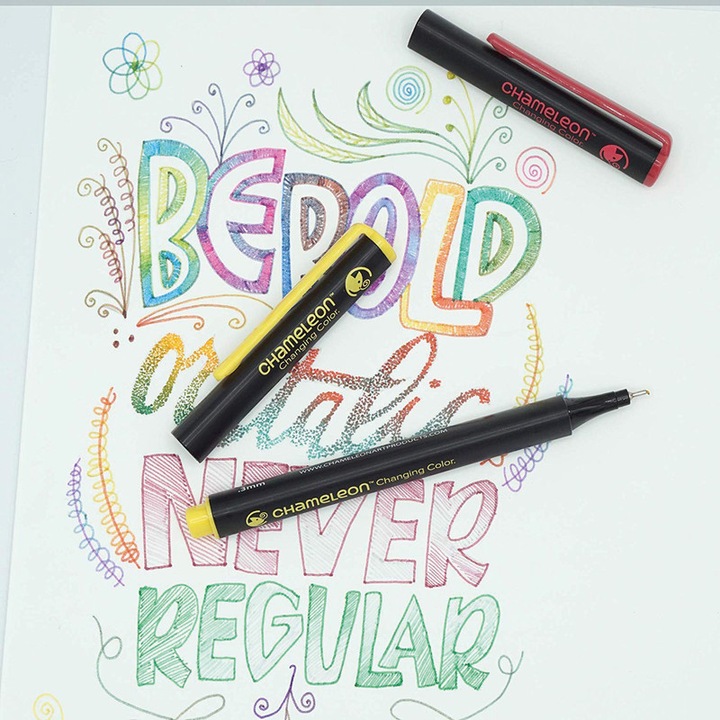 CHAMELEON™
Changing Color.
BE BOLD
or italic
CHAMELEON™
Changing Color.
WWW.CHAMELEONARTPRODUCTS.COM
.3mm
CHAMELEON™ Changing Color.
NEVER
REGULAR